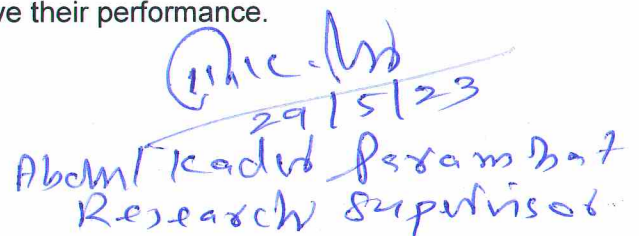 ve their performance.
29/5/23
Abdul Kader Parambat
Research Supervisor